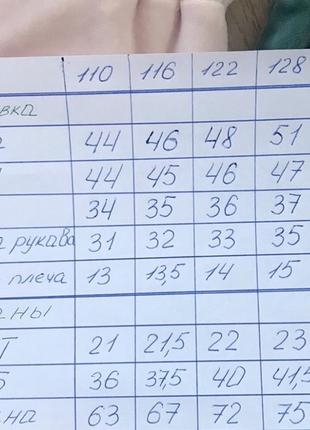 110 116 122 128
вка
44 46 48 51
44 45 46 47
34 35 36 37
рукава 31 32 33 35
плеча 13 13,5 14 15
ны
Т 21 21,5 22 23
Б 36 37,5 40 41,5
на 63 67 72 75